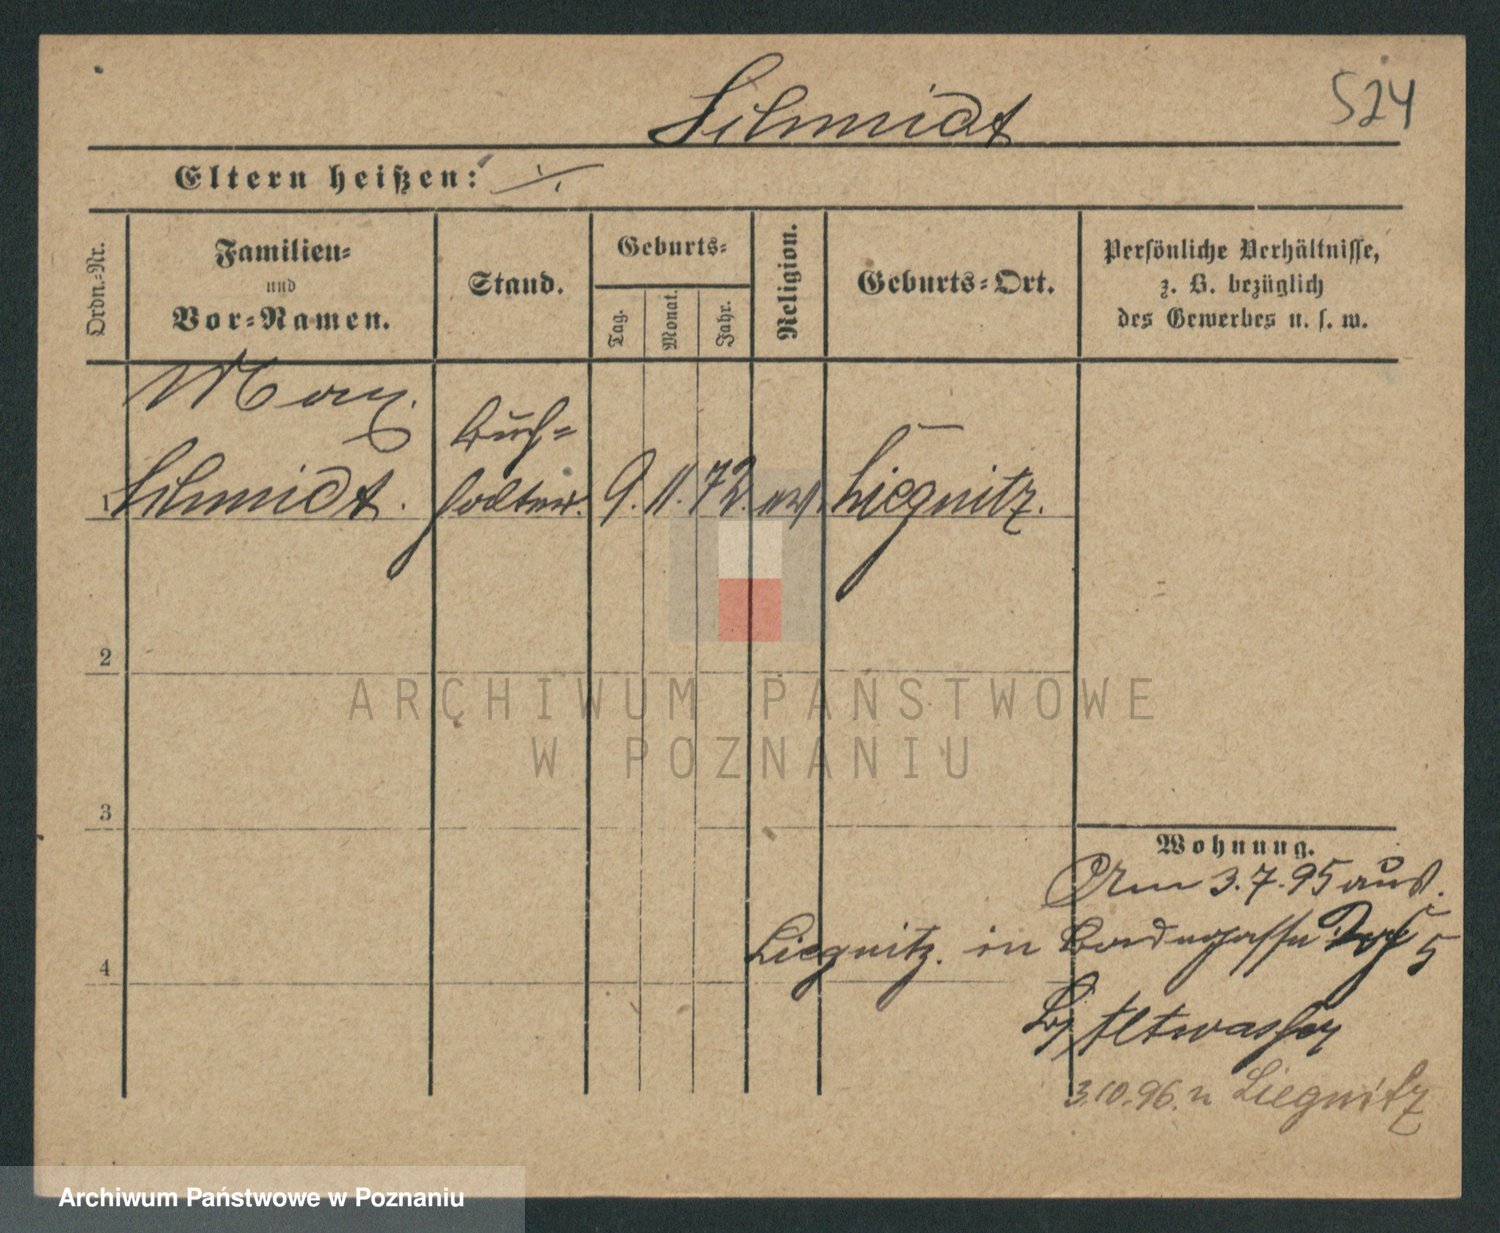 Schmidt
524
Eltern heißen: ⁒
Ordn.=Nr.
Familien=
und
Vor=Namen.
Stand.
Geburts=
Tag.
Monat.
Jahr.
Religion.
Geburts=Ort.
Persönliche Verhältnisse,
z. B. bezüglich
des Gewerbes u. s. w.
Max
Buch=
1 Schmidt. halter. 9. 11. 72. ev. Liegnitz.
2
ARCHIWUM PAŃSTWOWE
W POZNANIU
3
Wohnung.
Am 3.7.95 aus
Liegnitz. in 5
4
b/ Altwasser
3.10.96. n Liegnitz
Archiwum Państwowe w Poznaniu